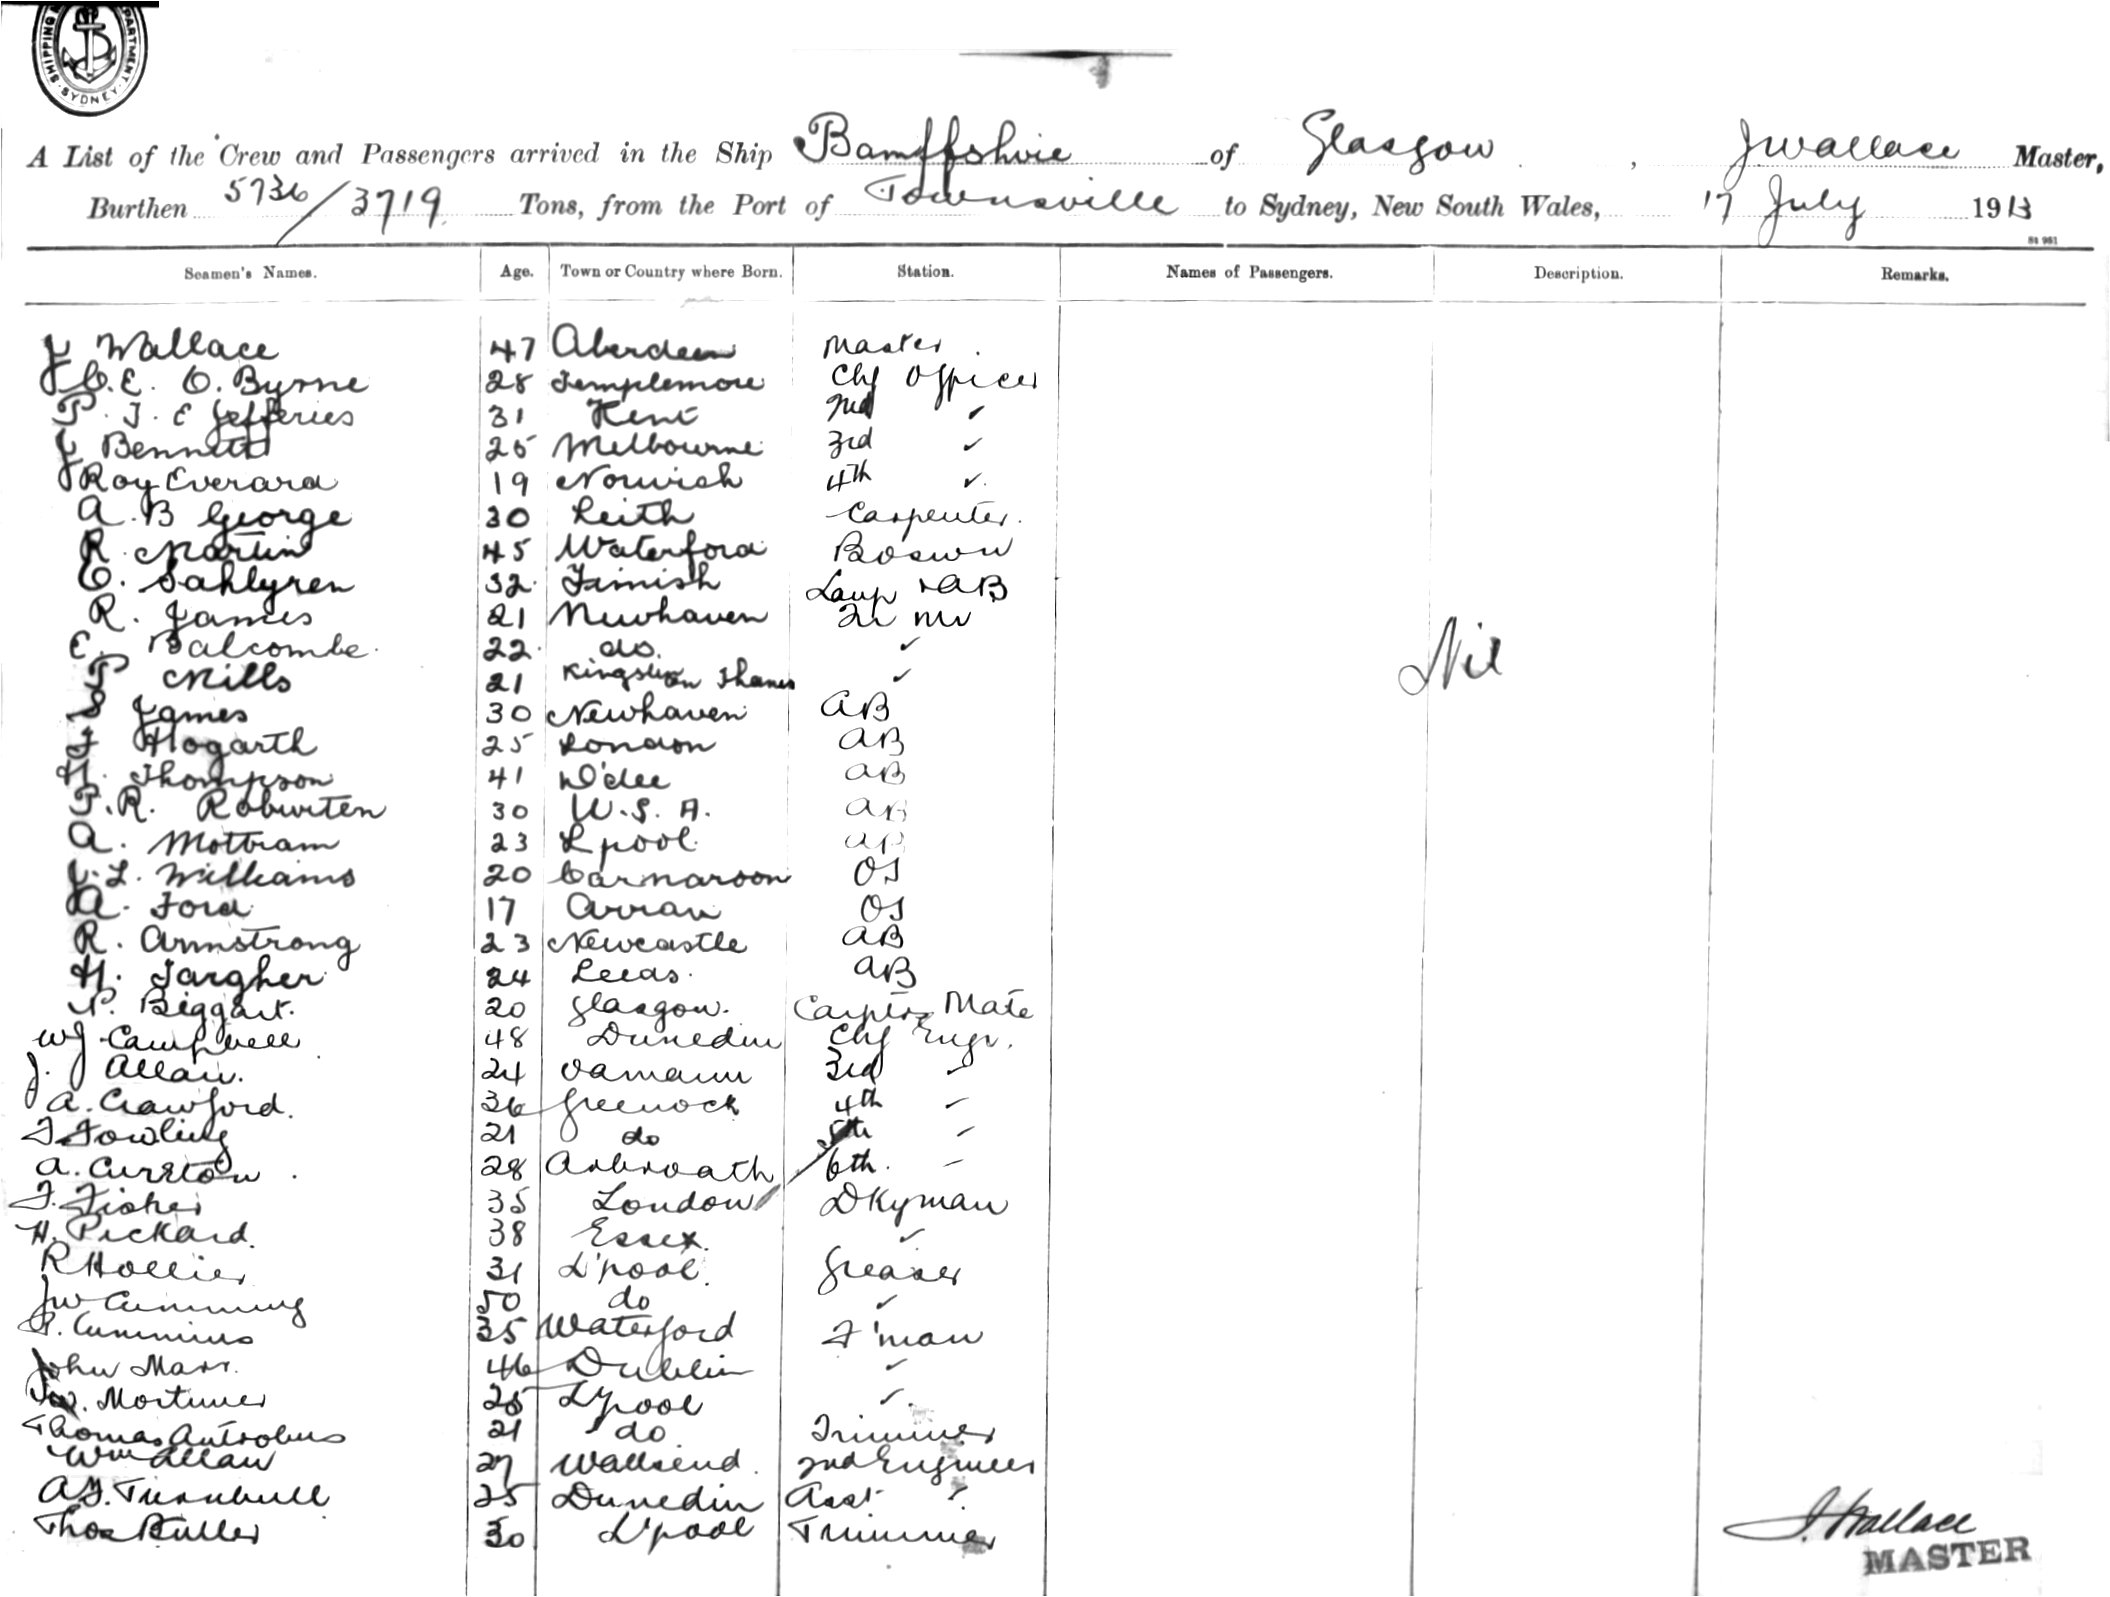 SHIPPING DEPARTMENT SYDNEY
A List of the Crew and Passengers arrived in the Ship Banffshire of Glasgow, J Wallace Master,
Burthen 5736/3719 Tons, from the Port of Townsville to Sydney, New South Wales, 17 July 1913
Seamen's Names. Age. Town or Country where Born. Station. Names of Passengers. Description. Remarks.
J Wallace 47 Aberdeen Master
J C. E. O. Byrne 28 Templemore Chf Officer
P. J. E Jefferies 31 Kent 2nd ✓
J Bennett 25 Melbourne 3rd ✓
Roy Everard 19 Norwich 4th ✓
A. B George 30 Leith Carpenter.
R. Martin 45 Waterford Boswn
E. Sahlgren 32 Finnish Lamp & AB
R. James 21 Newhaven
E. Balcombe 22 do. ✓
P Mills 21 Kingston Thames ✓
S James 30 Newhaven AB
J Hogarth 25 London AB
H. Thompson 41 D'dee AB
P. R. 30 U. S. A. AB
A. Mottram 23 Lpool AB
J. L. Williams 20 Carnarvon OS
A. Ford 17 Arran OS
R. Armstrong 23 Newcastle AB
H. Targher 24 Leeds. AB
P. Biggart. 20 Glasgow. Carptrs Mate
WJ Campbell 48 Dunedin Chf Engr.
J. Allan. 24 3rd ✓
A. Crawford. 36 Greenock 4th ✓
T Fowling 21 do 5th ✓
A. 28 Arbroath 6th. ✓
F. Fisher 35 London Dkyman
H. Pickard. 38 Essex. ✓
R Hollier 31 L'pool. Greaser
JW Cumming 50 do ✓
P. Cummins 35 Waterford F'man
John Marr. 46 Dublin ✓
Mortimer 25 L'pool ✓
Thomas Antrobus 21 do Trimmer
Wm Allan 27 Wallsend. 2nd Engineer
A.J. Turnbull 25 Dunedin Asst
Thos Butler 30 L'pool Trimmer
Nil
J. Wallace
MASTER